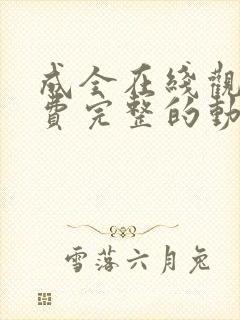 成全在綫觀
費完整的動
雪落六月兔